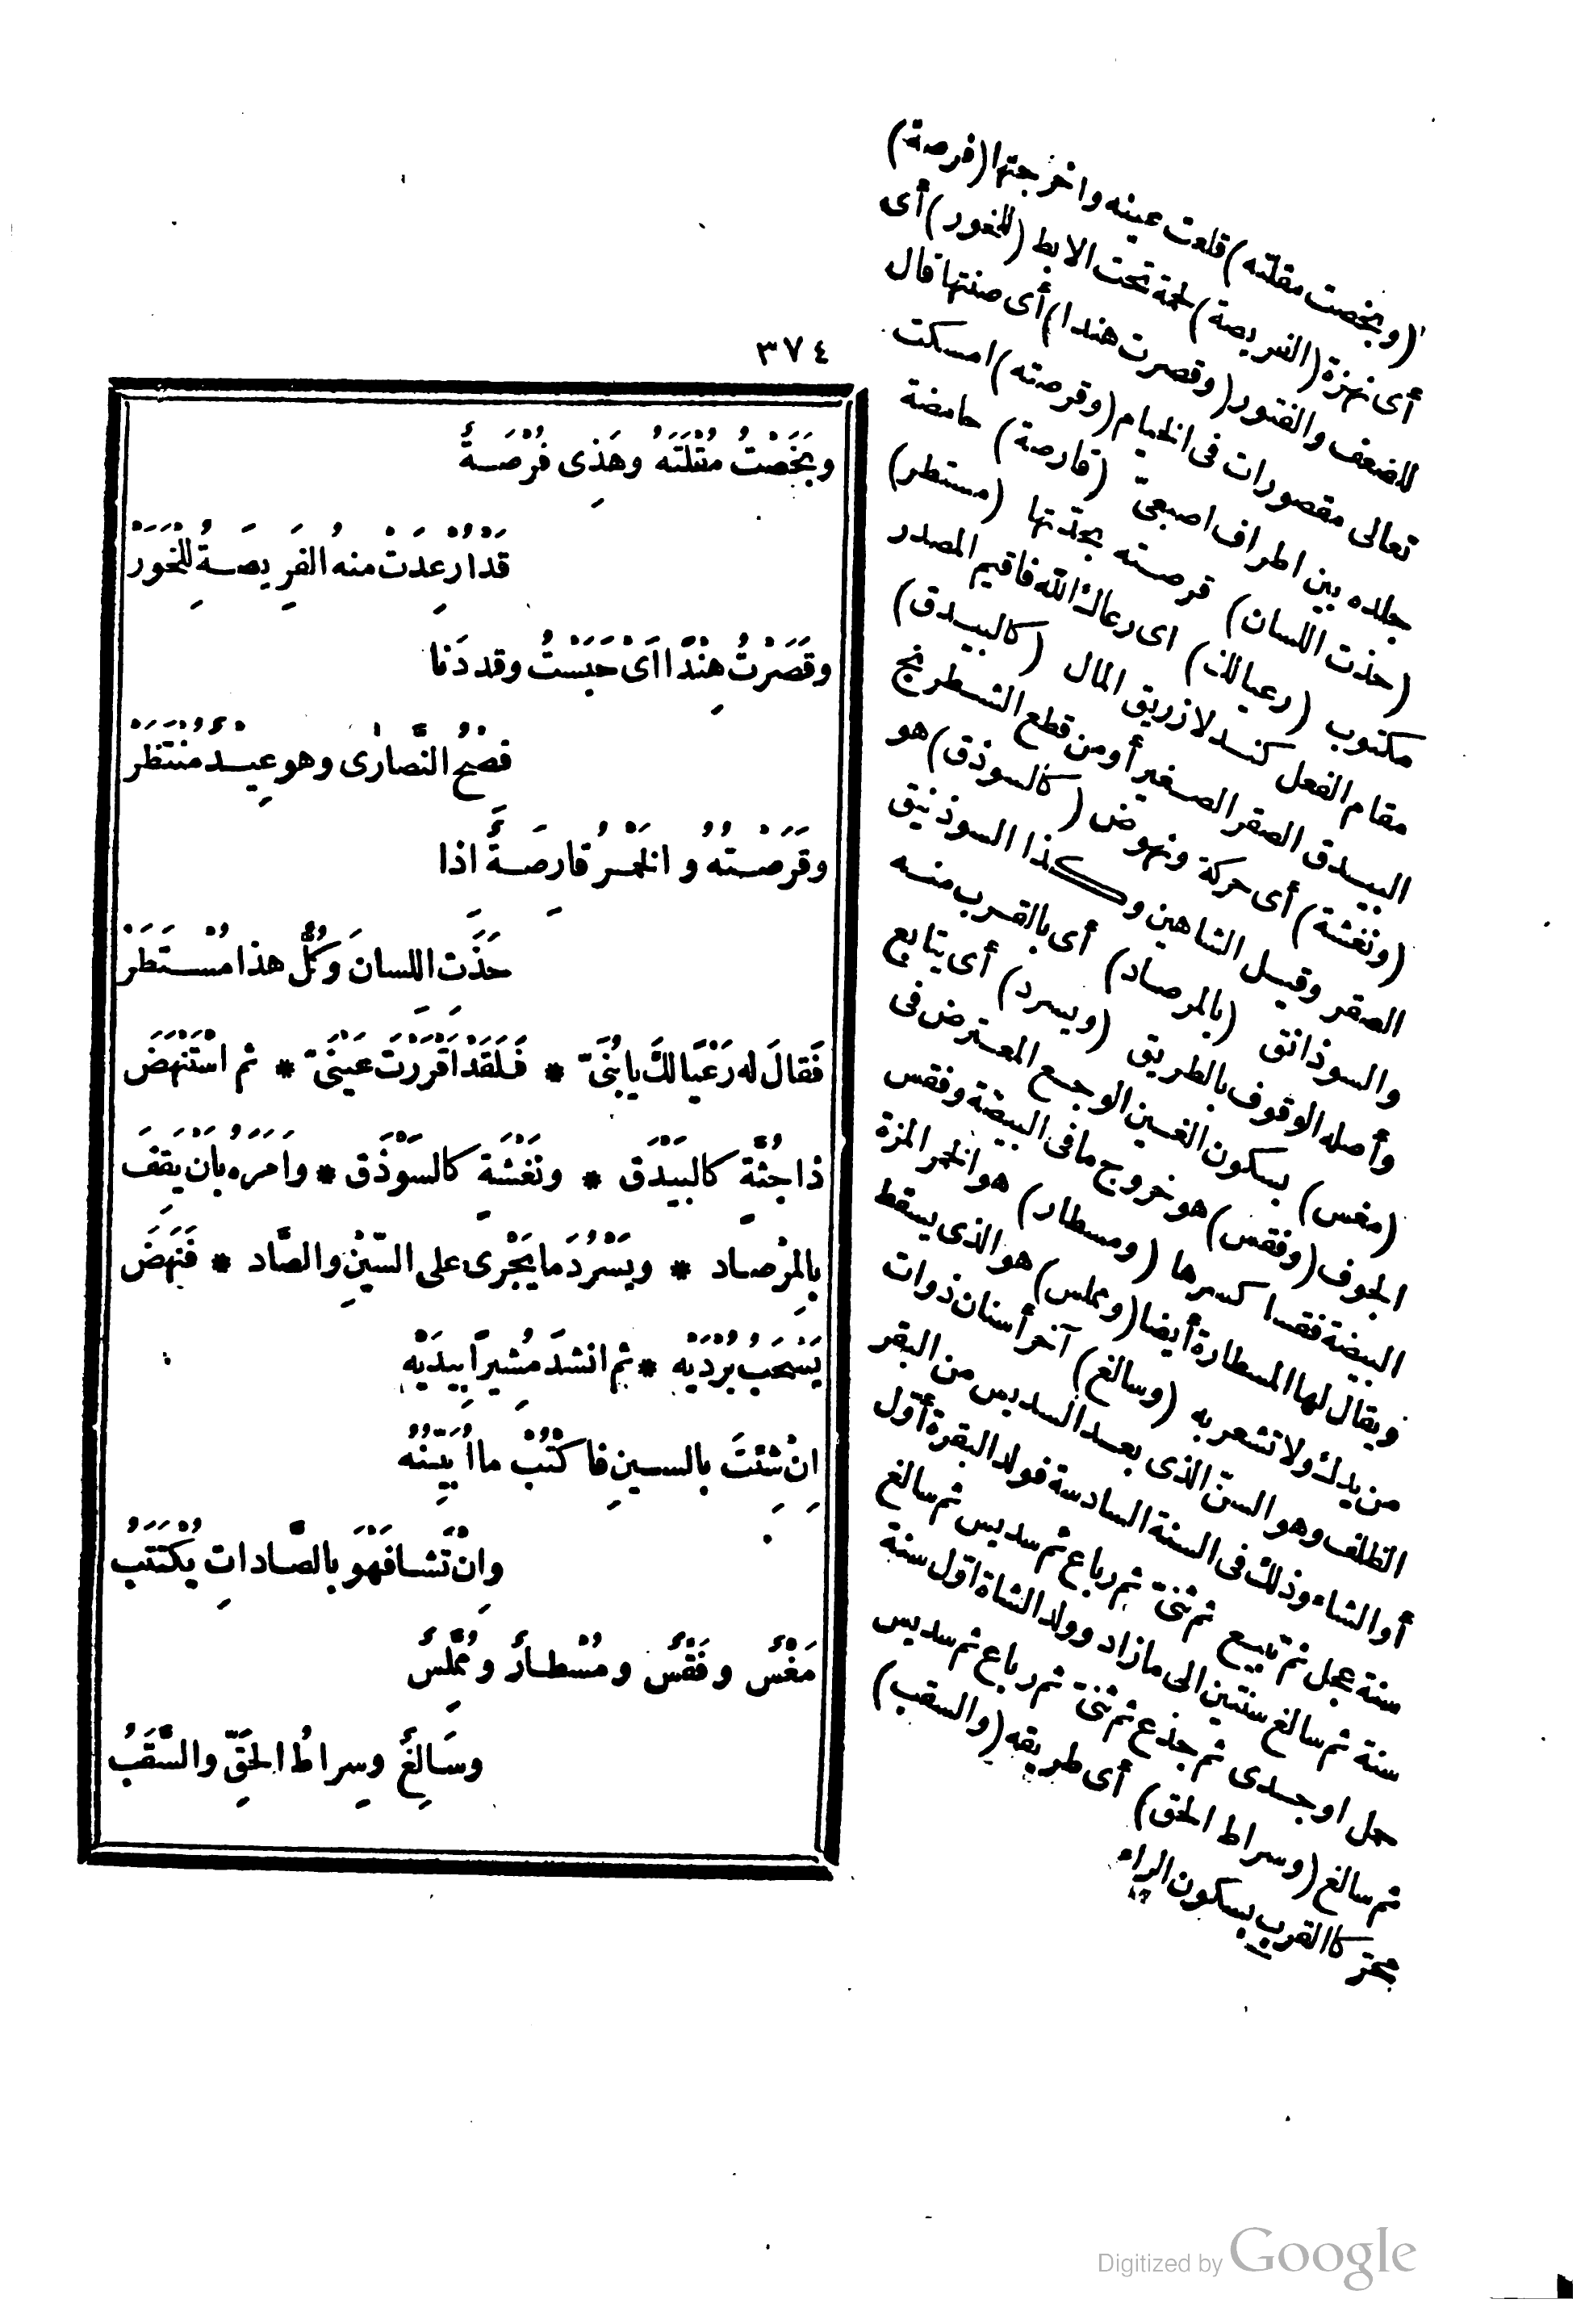 ٣٧٤
وبَخَصْتُ مُقْلَتَهُ وهَذِى فُرْصَةٌ
قَدْ اُرْعِدَتْ منهُ الفَرِيصَةُ لِلْخَوَرْ
وقَصَرْتُ هِنْدًا اَىْ حَبَسْتُ وقد دَنا
فِصْحُ النَّصَارٰى وهو عِيدٌ مُنْتَظَرْ
وقَرَصْتُهُ و الخَمْرُ قارِصَةٌ اذا
حَذَتِ اللِسانَ وَكُلُّ هذا مُسْتَطَرْ
فَقالَ له رَعْيًا لكَ يا بُنَىَّ * فَلَقَدْ اَقْرَرْتَ عَيْنَىَّ * ثم اسْتَنْهَضَ
ذا جُثَّةٍ كالبَيْدَق * ونَغْشَةٍ كالسَّوْذَق * واَمَرَهُ بأن يَقِفَ
بالمِرْصاد * ويَسْرُدَ ما يَجْرِى على السِّينِ والصَّاد * فَنَهَضَ
يَسْحَبُ بُرْدَيْه * ثم انشَدَ مُشِيرًا بِيَدَيْه
اِنْ شِئْتَ بالسينِ فاكْتُبْ ما اُبَيِّنُهُ
وإنْ تَشَا فَهْوَ بالصَّاداتِ يُكْتَتَبُ
مَغْسٌ وفَقْسٌ ومُسْطارٌ ومُمَّلِسٌ
وسَالِغٌ وسِراطُ الحَقِّ والسَّقَبُ
(وبخصت مقلته) قلعت عينه واخرجتها (فرصة)
أى نهزة (الفريصة) لحمة تحت الابط (للخور) أى
للضعف والفتور (وقصرت هندا) أى صنتها قال
تعالى مقصورات فى الخيام (وقرصته) امسكت
جلده بين اطراف اصبعىّ (قارصة) حامضة
(حذت اللسان) قرصته بحدّتها (مستطر)
مكتوب (رعيالك) اى رعاك الله فاقيم المصدر
مقام الفعل كندلا زريق المال (كالبيدق)
البيدق الصقر الصغير أو من قطع الشطرنج
(ونغشة) أى حركة ونهوض (كالسوذق) هو
الصقر وقيل الشاهين وكذا السوذنيق
والسوذانق (بالمرصاد) أى بالقرب منه
وأصله الوقوف بالطريق (ويسرد) أى يتابع
(مغس) بسكون الغين الوجع المعترض فى
الجوف (وفقس) هو خروج ما فى البيضة وفقس
البيضة فقسا كسرها (ومسطار) هو الخمر المزة
ويقال لها المسطارة أيضا (ومملس) هو الذى يسقط
من يدك ولا تشعر به (وسالغ) آخر أسنان ذوات
الظلف وهو السنّ الذى بعد السديس من البقر
أو الشاء وذلك فى السنة السادسة فولد البقرة أوّل
سنة عجل ثم تبيع ثم ثنىّ ثم رباع ثم سديس ثم سالغ
سنة ثم سالغ سنتين الى ما زاد وولد الشاة اوّل سنة
حمل او جدى ثم جذع ثم ثنىّ ثم رباع ثم سديس
ثم سالغ (وسراط الحق) أى طريقه (والسقب)
محرّكا القرب بسكون الراء
Digitized by Google